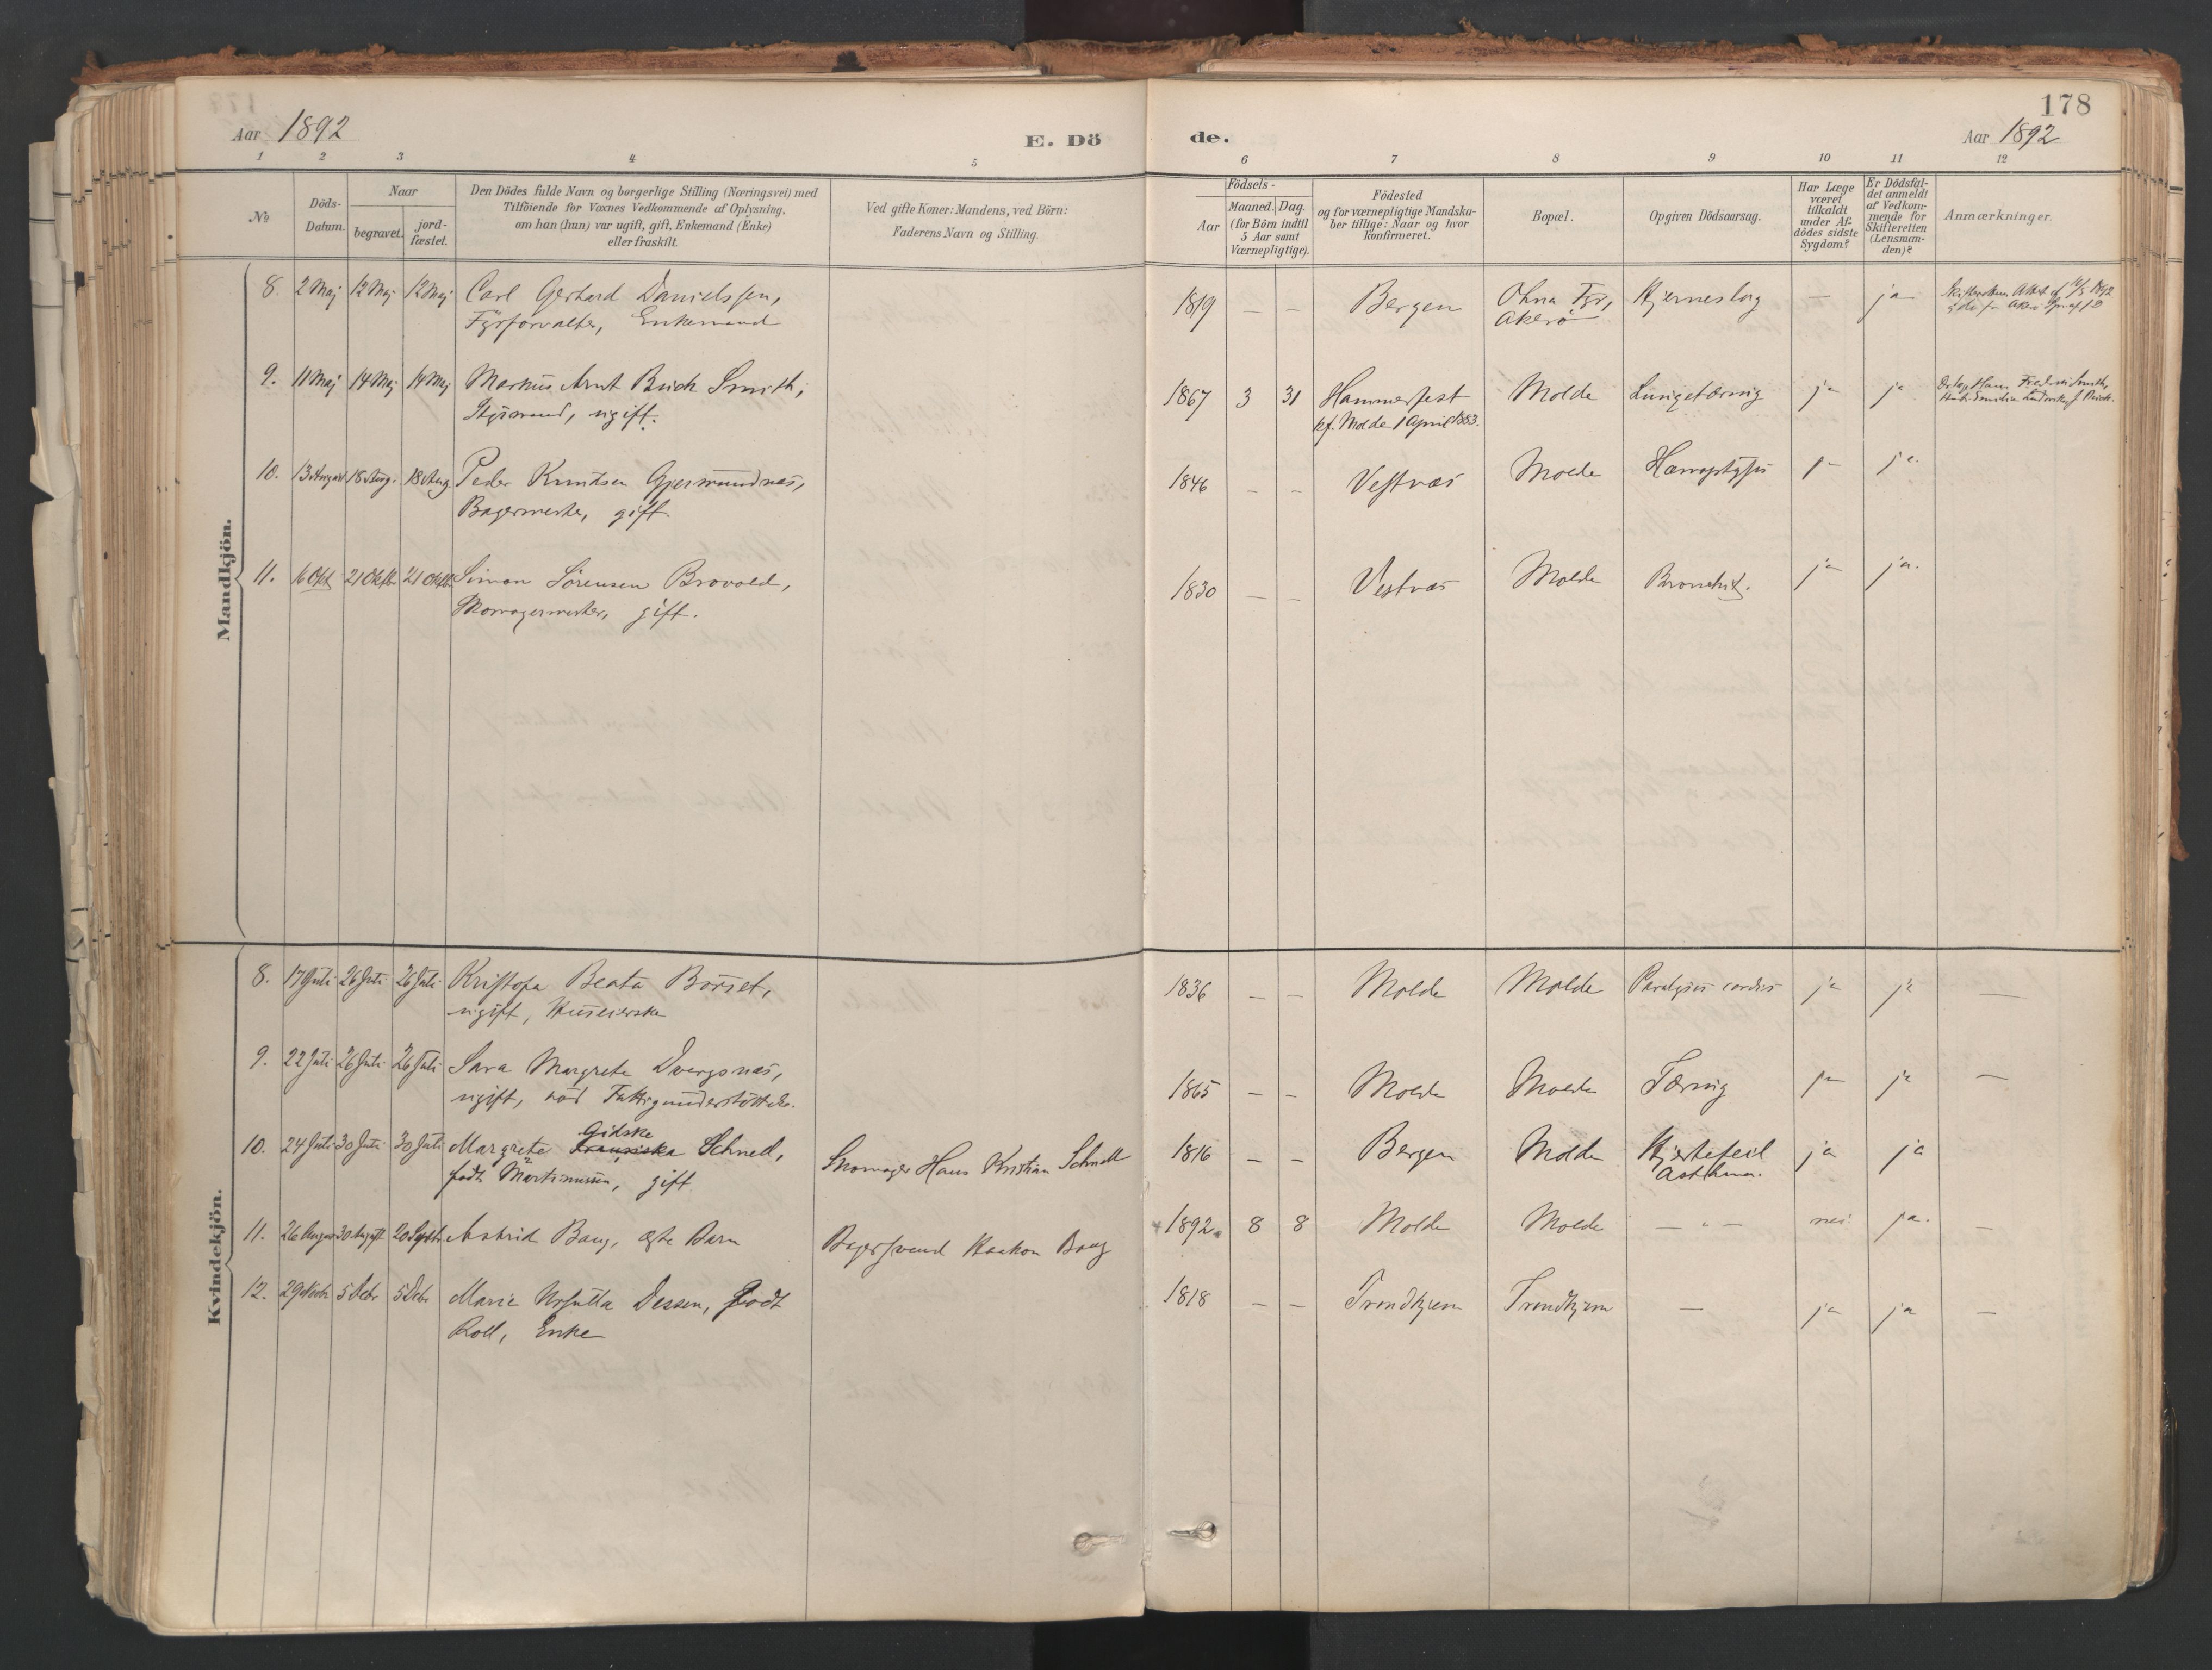 178
Aar 1892
E. Dö
de.
Aar 1892
1 2 3 4 5 6 7 8 9 10 11 12
No
Döds-
Datum.
Naar
begravet.
jord-
fæstet.
Den Dödes fulde Navn og borgerlige Stilling (Næringsvei) med
Tilföiende for Voxnes Vedkommende af Oplysning,
om han (hun) var ugift, gift, Enkemand (Enke)
eller fraskilt.
Ved gifte Koner: Mandens, ved Börn:
Faderens Navn og Stilling.
Födsels-
Aar
Maaned. Dag.
(for Börn indtil
5 Aar samt
Værnepligtige).
Födested
og for værnepligtige Mandska-
ber tillige: Naar og hvor
konfirmeret.
Bopæl.
Opgiven Dödsaarsag.
Har Læge
været
tilkaldt
under Af-
dödes sidste
Sygdom?
Er Dödsfal-
det anmeldt
af Vedkom-
mende for
Skifteretten
(Lensman-
den)?
Anmærkninger.
Mandkjön.
8. 2 Maj 12 Maj 12 Maj Carl Gerhard Danielssen, 1819 — — Bergen Ohna Fyr, Hjerneslag — ja
Fyrforvalter, Enkemand Akerö
9. 11 Maj 14 Maj 14 Maj Markus Arnt Buck Smith, 1867 3 31 Hammerfest Molde Lungetæring ja ja
Styrmand, ugift. kf. Molde 1 April 1883.
10. 13 August 18 Aug. 18 Aug. Peder Knudsen Gjermundnæs, 1846 — — Vestnæs Molde Hæmoptysis ja ja.
Bagermester, gift.
11. 16 Okt 21 Oktbr 21 Oktbr Simon Sörensen Brovold, 1830 — — Vestnæs Molde Bronchit. ja ja.
Skomagermester, gift.
Kvindekjön.
8. 17 Juli 26 Juli 26 Juli Kristofa Beata Börset, 1836 — — Molde Molde Paralysis cordis ja ja —
ugift, Huseierske
9. 22 Juli 26 Juli 26 Juli Sara Margrete Dvergsnæs, 1865 — — Molde Molde Tæring ja ja —
ugift, nöd Fattigunderstöttelse.
Gidske
10. 24 Juli 30 Juli 30 Juli Margrete Franziska Schnell, Skomager Hans Kristian Schnell 1816 — — Bergen Molde Hjertefeil ja ja
födt Martinussen, gift Asthma.
11. 26 August 30 August 20 Septbr Astrid Bang, ægte Barn Bagersvend Haakon Bang 1892 8 8 Molde Molde — " — nei ja. —
12. 29 Novbr 5 Debr 5 Debr Marie Ursulla Dessen, födt 1818 — — Trondhjem Trondhjem — ja ja —
Roll, Enke